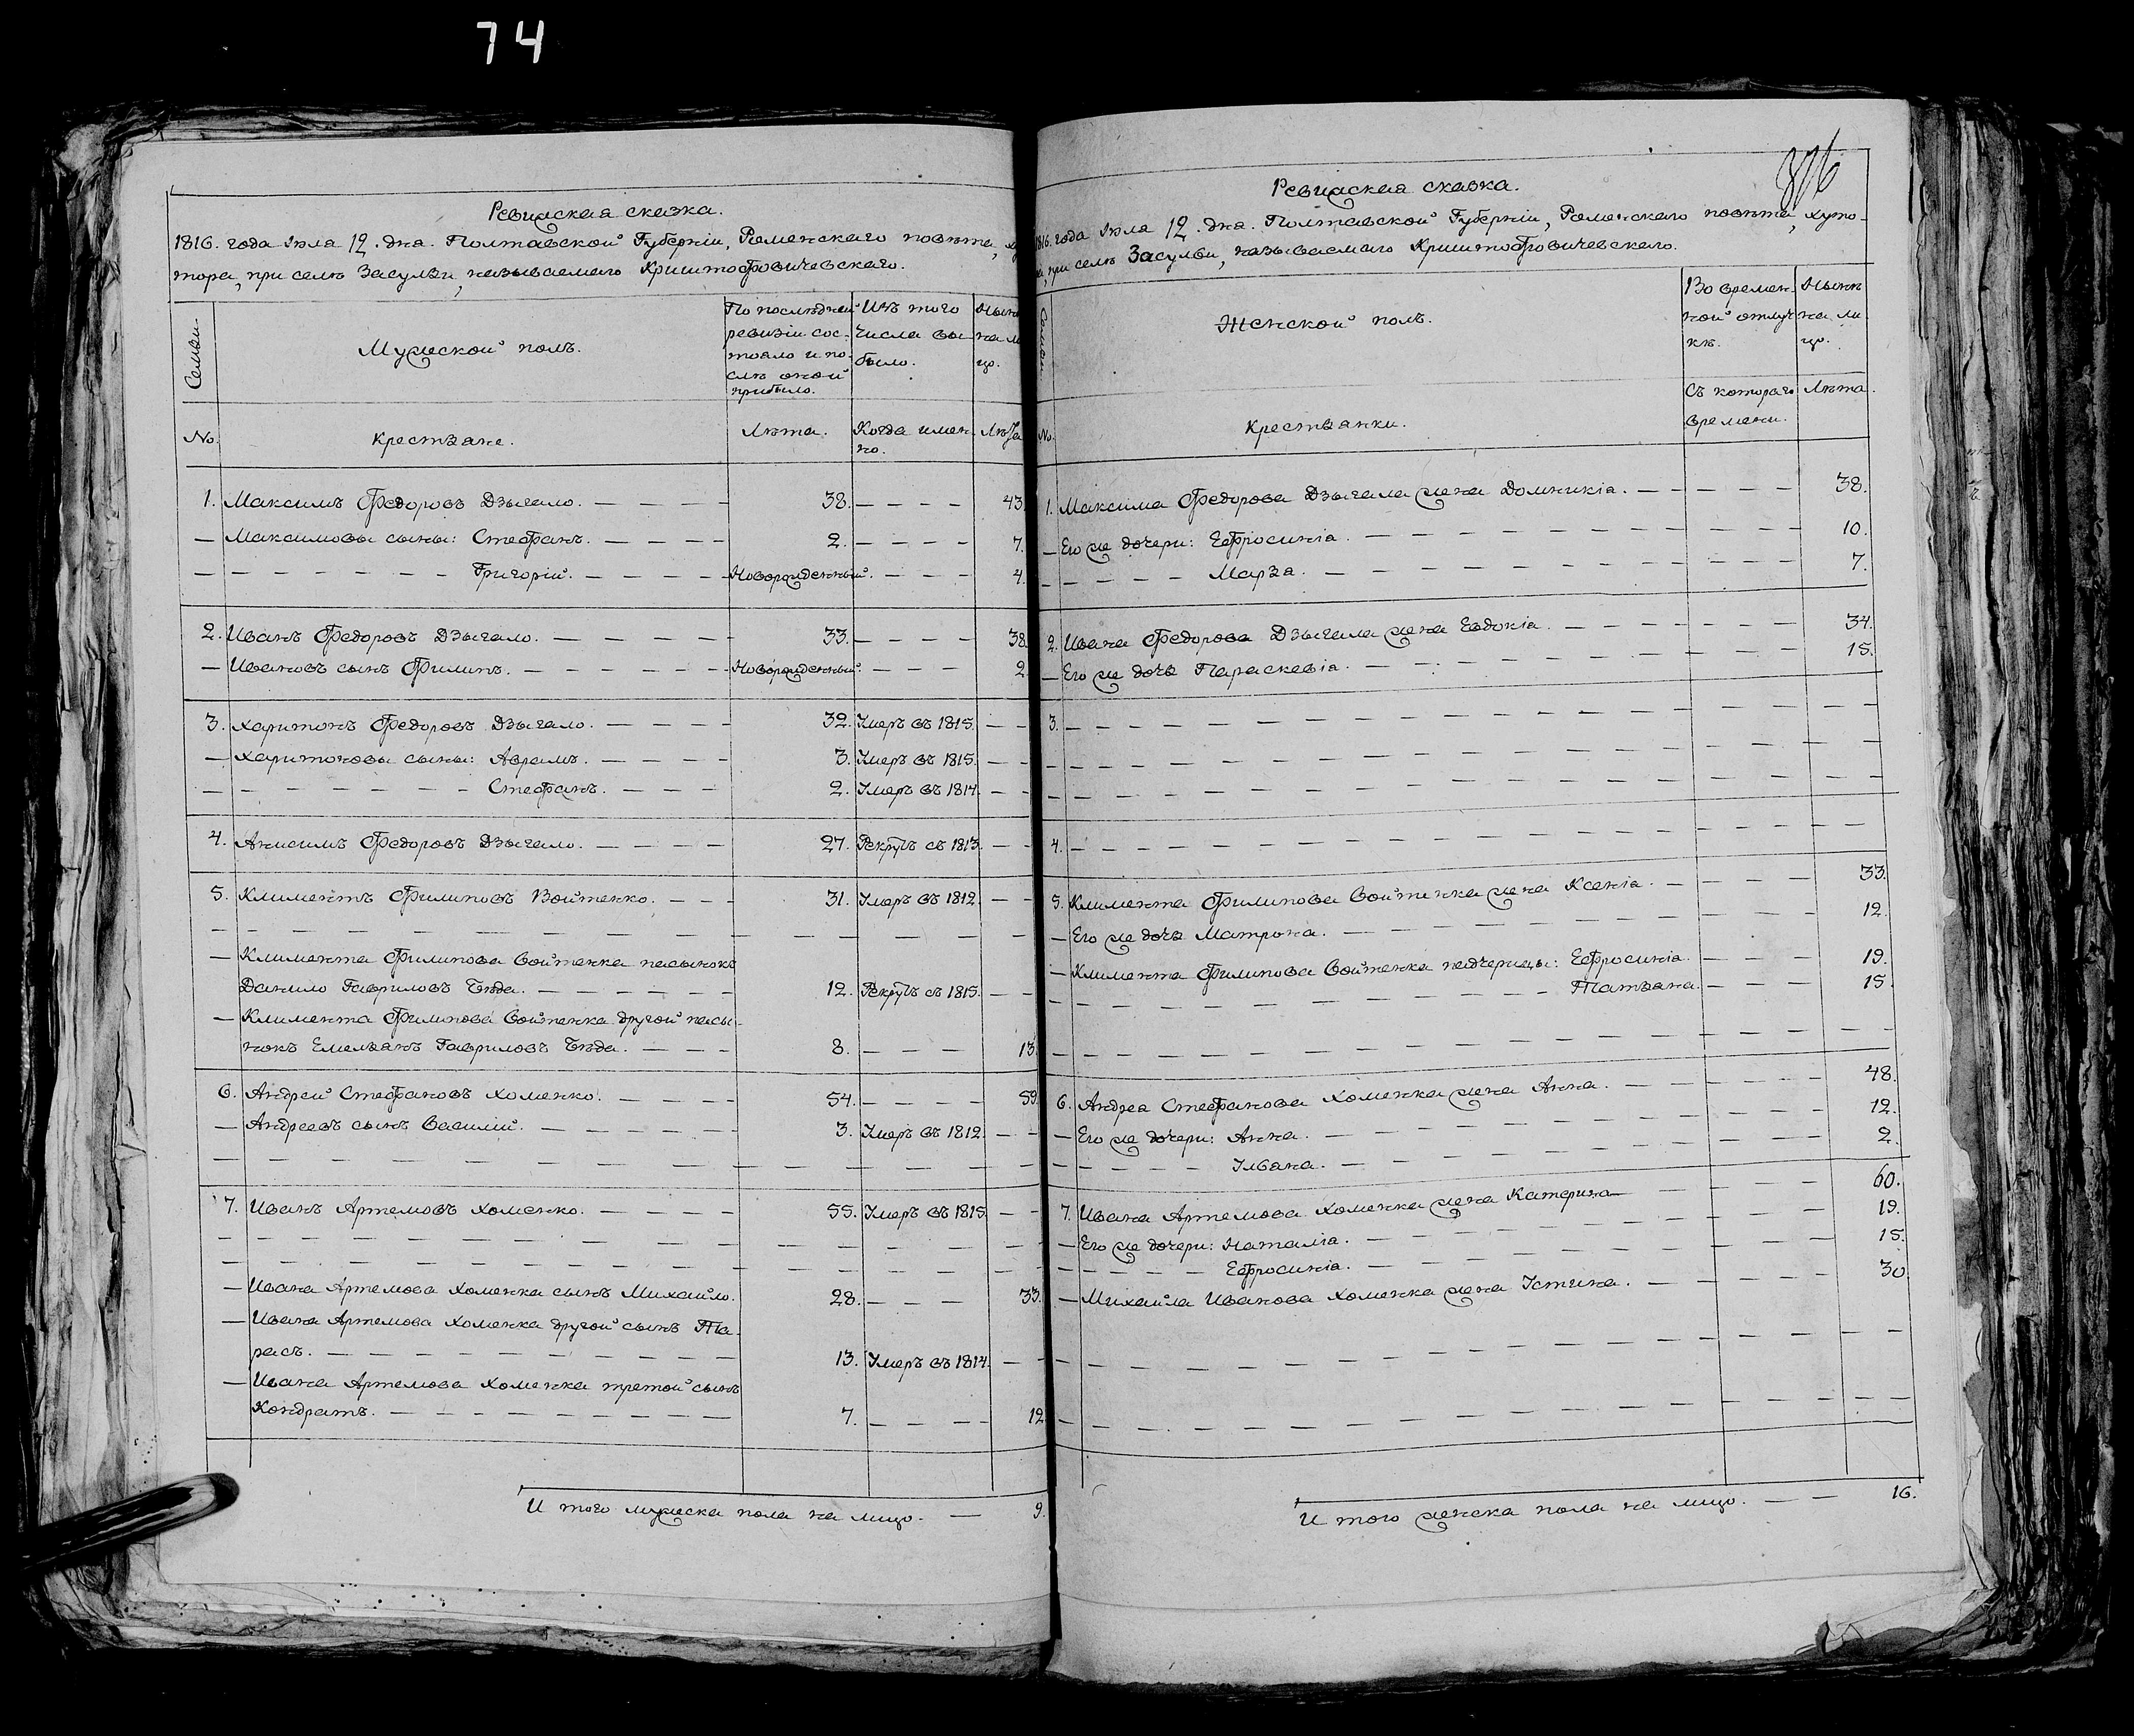 74
Ревижская сказка.
1816. года Iюла 12. дна. Полтавской Губернiи, Роменскаго повѣта, ху
тора, при селѣ Засульи, называемаго Криштофовичевскаго.
Семьи.
Мужеской полъ.
По послѣдней
ревизiи сос-
тояло и по-
слѣ оной
прибыло.
Изъ того
числа вы-
было.
Нынѣ
на ли
цо.
№.
Крестьяне.
Лѣта.
Когда имен-
но.
Лѣта
1. Максимъ Федоровъ Дзыгало. 38. 43.
Максимовы сыны: Стефанъ. 2. 7.
Григорiй. Новорожденный. 4.
2. Иванъ Федоровъ Дзыгало. 33. 38
Ивановъ сынъ Филипъ. Новорожденный. 2.
3. Харитонъ Федоровъ Дзыгало. 32. Умеръ въ 1815.
Харитоновы сыны: Аврамъ. 3. Умеръ въ 1815.
Стефанъ. 2. Умеръ въ 1814.
4. Анисимъ Федоровъ Дзыгало. 27. Рекрутъ съ 1813.
5. Климентъ Филиповъ Войтенко. 31. Умеръ въ 1812
Климента Филипова Войтенка пасынокъ
Данило Гавриловъ Бѣда. 12. Рекрутъ съ 1815.
Климента Филипова Войтенка другой пасы-
нокъ Емельянъ Гавриловъ Бѣда. 8. 13.
6. Андрей Стефановъ Хоменко. 54. 59.
Андреевъ сынъ Василiй. 3. Умеръ въ 1812.
7. Иванъ Артемовъ Хоменко. 55. Умеръ въ 1815
Ивана Артемова Хоменка сынъ Михайло. 28. 33.
Ивана Артемова Хоменка другой сынъ Та-
расъ. 13. Умеръ въ 1814.
Ивана Артемова Хоменка третой сынъ
Кондратъ. 7. 12
И того мужеска пола на лицо. 9.
Ревижская сказка.
1816. года Iюла 12. дна. Полтавской Губернiи, Роменскаго повѣта, хуто-
ра, при селѣ Засульи, называемаго Криштофовичевскаго.
Семьи.
Женской полъ.
Во времен-
ной отлуч-
кѣ.
Нынѣ
на ли
цо.
№.
Крестьянки.
Съ котораго
времени.
Лѣта.
1. Максима Федорова Дзыгала жена Домникiа. 38.
Его же дочери: Ефросинiа. 10.
Марья. 7.
2. Ивана Федорова Дзыгала жена Евдокiа. 34.
Его же дочь Параскевiа. 15.
3.
4.
5. Климента Филипова Войтенка жена Ксенiа. 33.
Его же дочь Матрона. 12.
Климента Филипова Войтенка падчерицы: Ефросинiа. 19.
Татьяна. 15.
6. Андреа Стефанова Хоменка жена Анна. 48.
Его же дочери: Анна. 12.
Ульана. 2.
7. Ивана Артемова Хоменка жена Катерина 60.
Его же дочери: Наталiа. 19.
Ефросинiа. 15.
Михайла Иванова Хоменка жена Устина. 30
И того женска пола на лицо. 16.